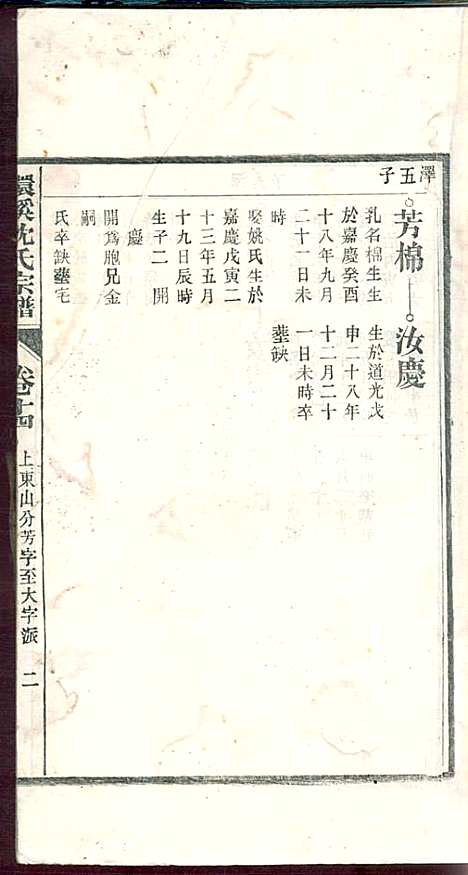 澤五子
芳棉
乳名棉生生
於嘉慶癸酉
十八年九月
二十一日未
時
娶姚氏生於
嘉慶戊寅二
十三年五月
十九日辰時
生子二 開
慶
開為胞兄金
嗣
氏卒缺塟宅
汝慶
生於道光戊
申二十八年
十二月二十
一日未時卒
塟缺
環溪沈氏宗譜
卷十四
上東山分芳字至大字派
二